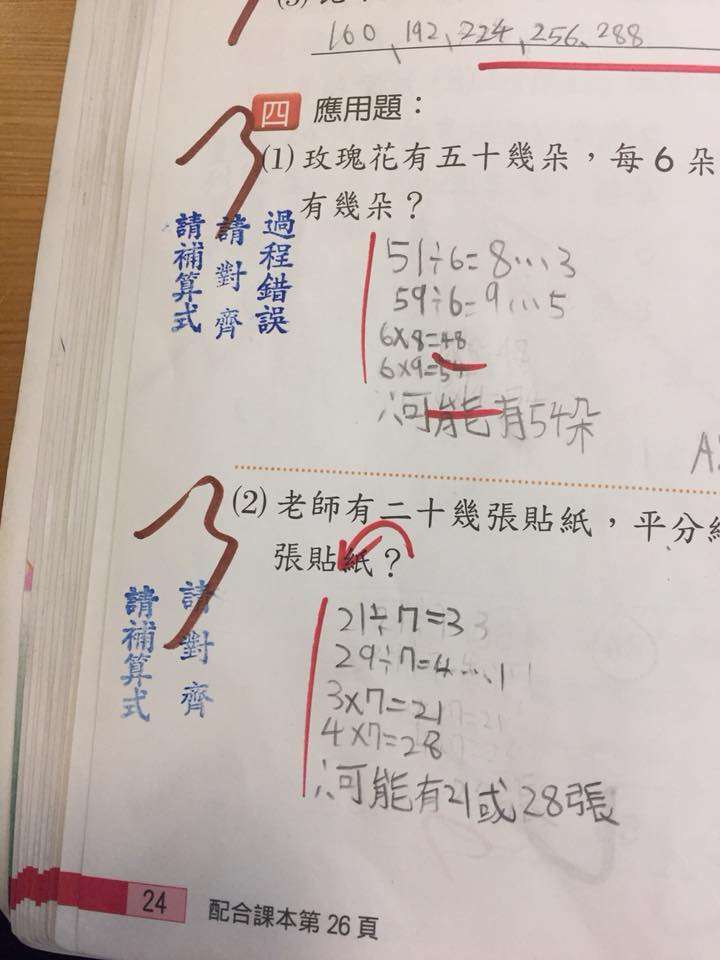 160、192、224、256、288
四 應用題：
(1) 玫瑰花有五十幾朵，每6朵
有幾朵？
過程錯誤
請對齊
請補算式
51÷6=8…3
59÷6=9…5
6×8=48
6×9=54
∴可能有54朵
(2) 老師有二十幾張貼紙，平分給
張貼紙？
請對齊
請補算式
21÷7=3
29÷7=4…1
3×7=21
4×7=28
∴可能有21或28張
24 配合課本第26頁